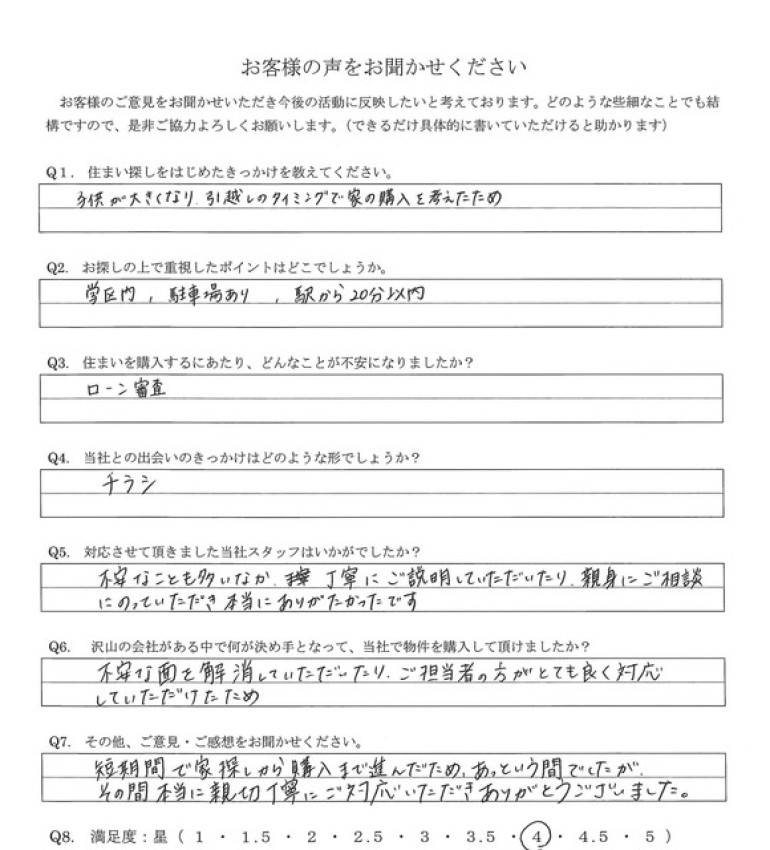 お客様の声をお聞かせください
お客様のご意見をお聞かせいただき今後の活動に反映したいと考えております。どのような些細なことでも結
構ですので、是非ご協力よろしくお願いします。（できるだけ具体的に書いていただけると助かります）
Q1. 住まい探しをはじめたきっかけを教えてください。
子供が大きくなり、引越しのタイミングで家の購入を考えたため
Q2. お探しの上で重視したポイントはどこでしょうか。
学区内 , 駐車場あり , 駅から20分以内
Q3. 住まいを購入するにあたり、どんなことが不安になりましたか？
ローン審査
Q4. 当社との出会いのきっかけはどのような形でしょうか？
チラシ
Q5. 対応させて頂きました当社スタッフはいかがでしたか？
不安なことも多いなか、丁寧にご説明していただいたり、親身にご相談
にのっていただき本当にありがたかったです
Q6. 沢山の会社がある中で何が決め手となって、当社で物件を購入して頂けましたか？
不安な面を解消していただいたり、ご担当者の方がとても良く対応
していただけたため
Q7. その他、ご意見・ご感想をお聞かせください。
短期間で家探しから購入まで進んだため、あっという間でしたが、
その間本当に親切丁寧にご対応いただきありがとうございました。
Q8. 満足度：星（ 1 ・ 1.5 ・ 2 ・ 2.5 ・ 3 ・ 3.5 ・ 4 ・ 4.5 ・ 5 ）